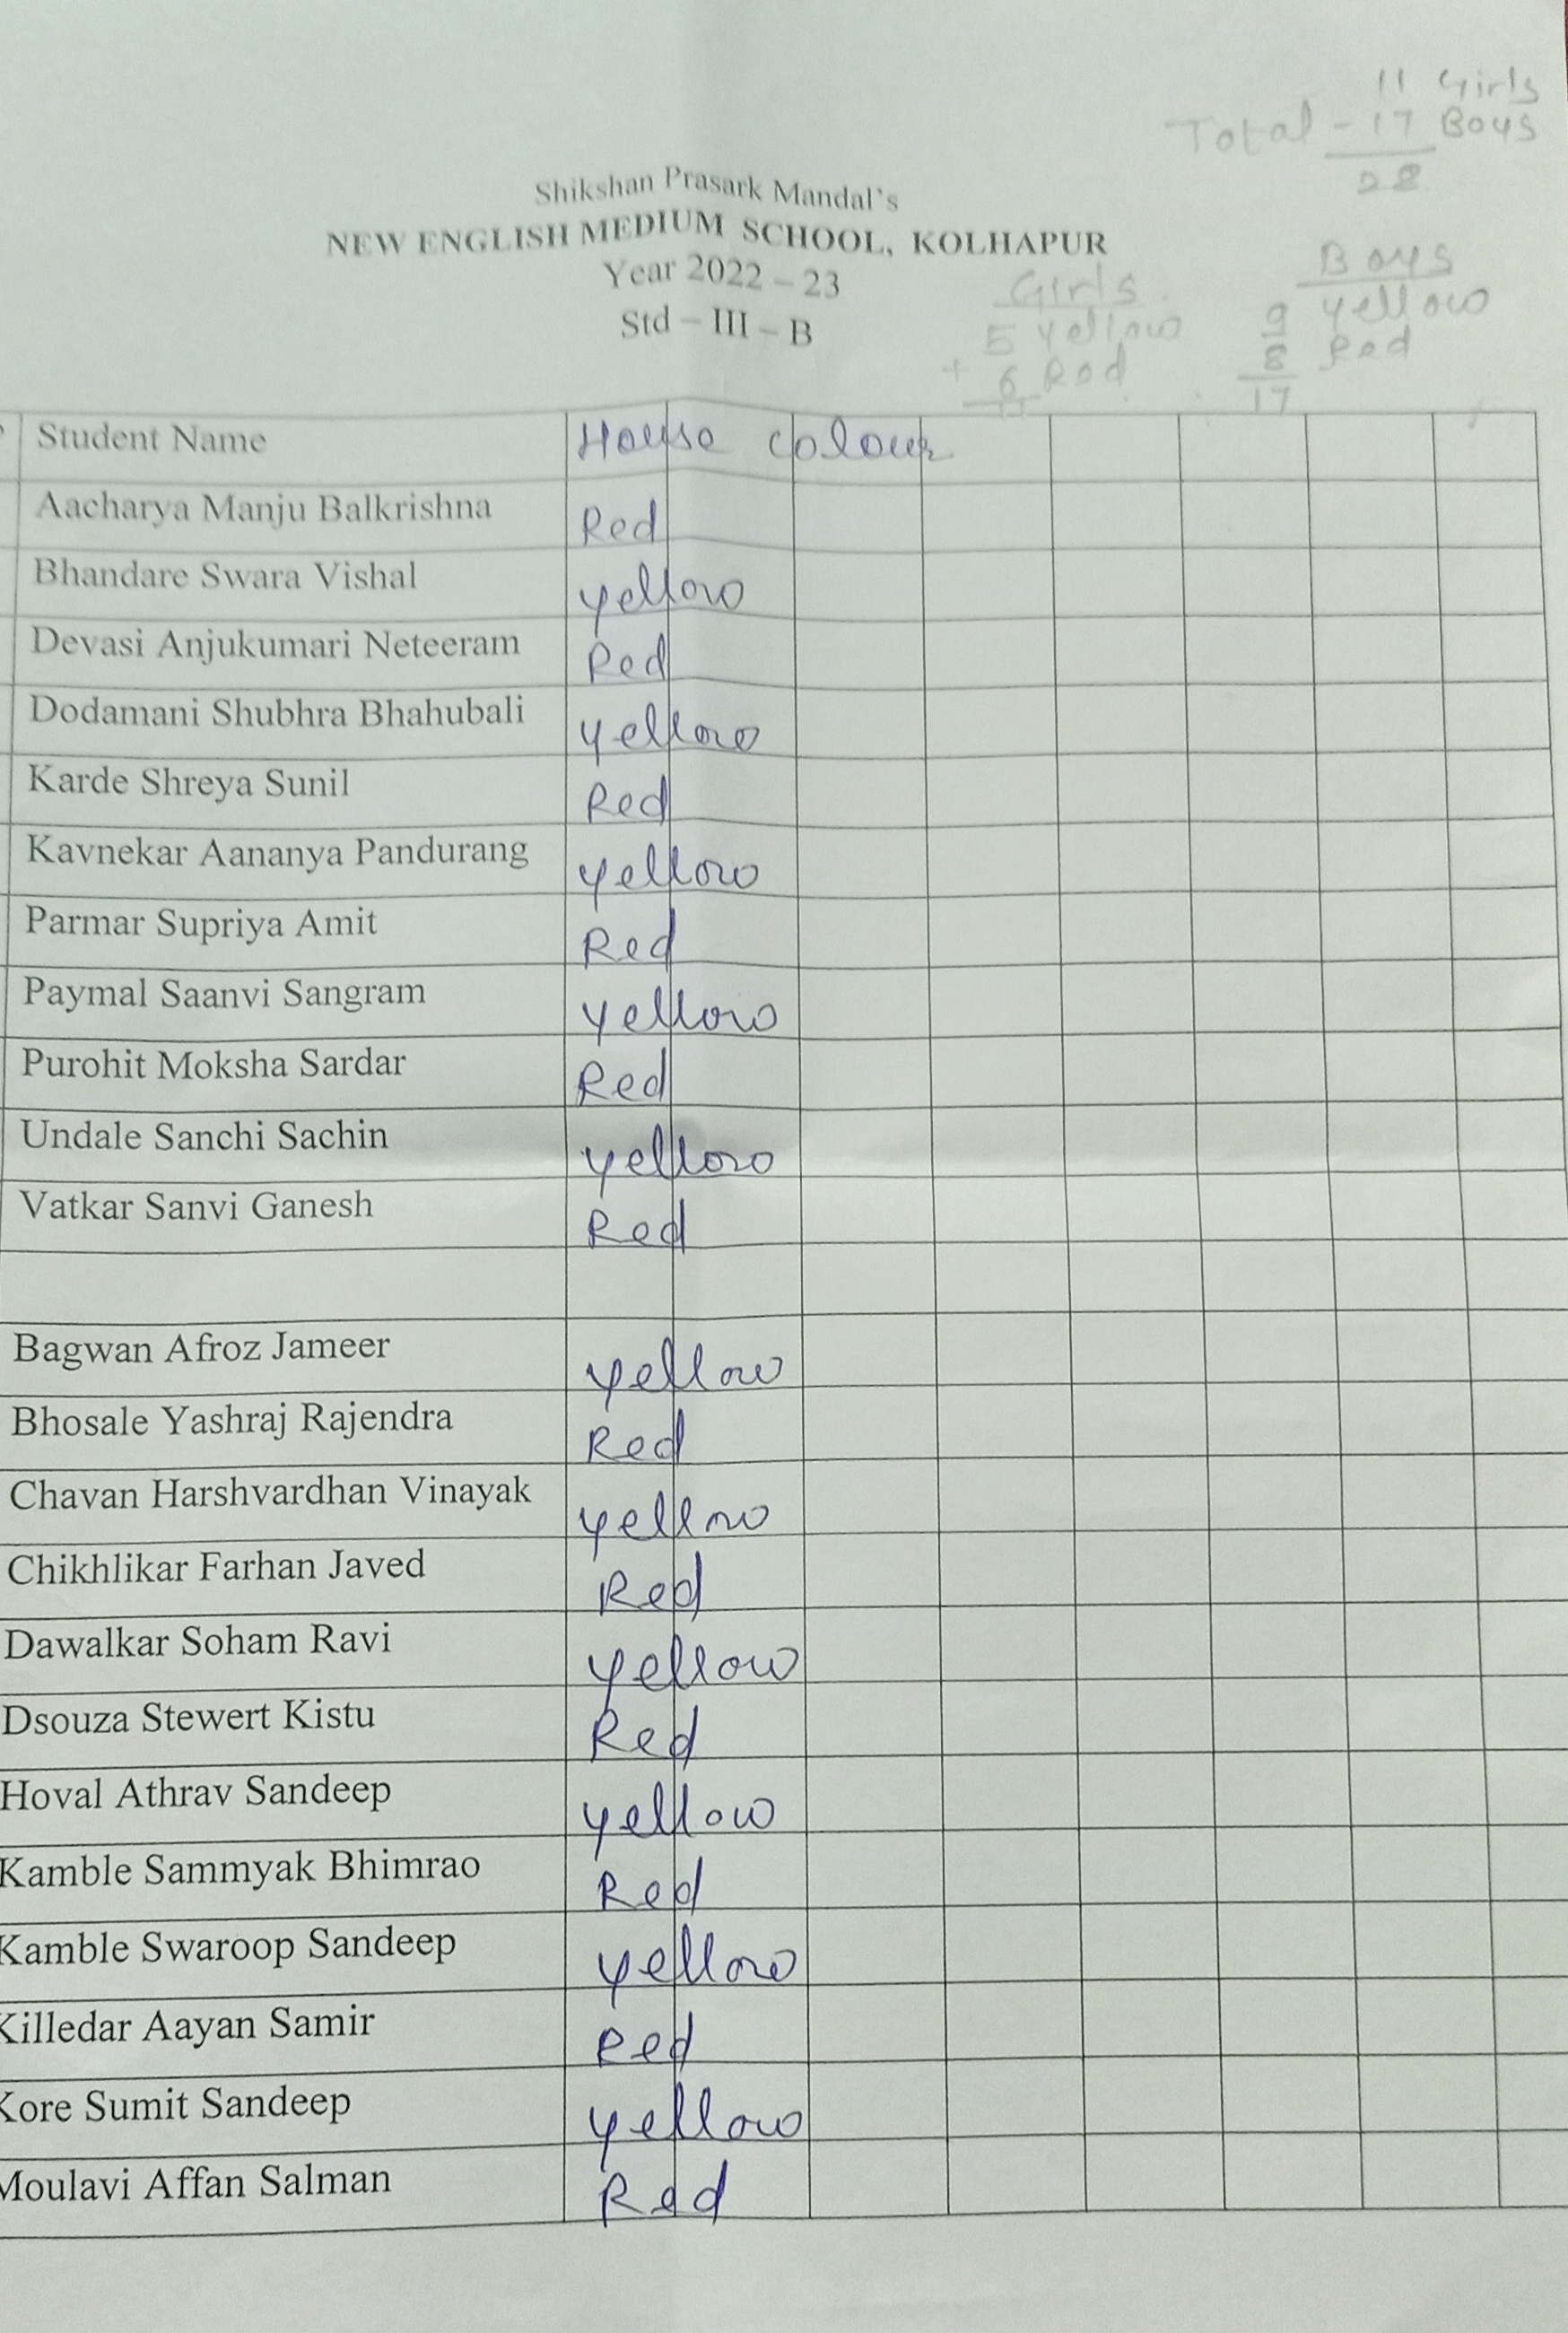 11 Girls
Total - 17 Boys
28
Shikshan Prasark Mandal's
NEW ENGLISH MEDIUM SCHOOL, KOLHAPUR
Year 2022 – 23
Std – III – B
Girls
5 Yellow
+ 6 Red
11
Boys
9 Yellow
8 Red
17
Student Name House colour
Aacharya Manju Balkrishna Red
Bhandare Swara Vishal Yellow
Devasi Anjukumari Neteeram Red
Dodamani Shubhra Bhahubali Yellow
Karde Shreya Sunil Red
Kavnekar Aananya Pandurang Yellow
Parmar Supriya Amit Red
Paymal Saanvi Sangram Yellow
Purohit Moksha Sardar Red
Undale Sanchi Sachin Yellow
Vatkar Sanvi Ganesh Red
Bagwan Afroz Jameer Yellow
Bhosale Yashraj Rajendra Red
Chavan Harshvardhan Vinayak Yellow
Chikhlikar Farhan Javed Red
Dawalkar Soham Ravi Yellow
Dsouza Stewert Kistu Red
Hoval Athrav Sandeep Yellow
Kamble Sammyak Bhimrao Red
Kamble Swaroop Sandeep Yellow
Killedar Aayan Samir Red
Kore Sumit Sandeep Yellow
Moulavi Affan Salman Red